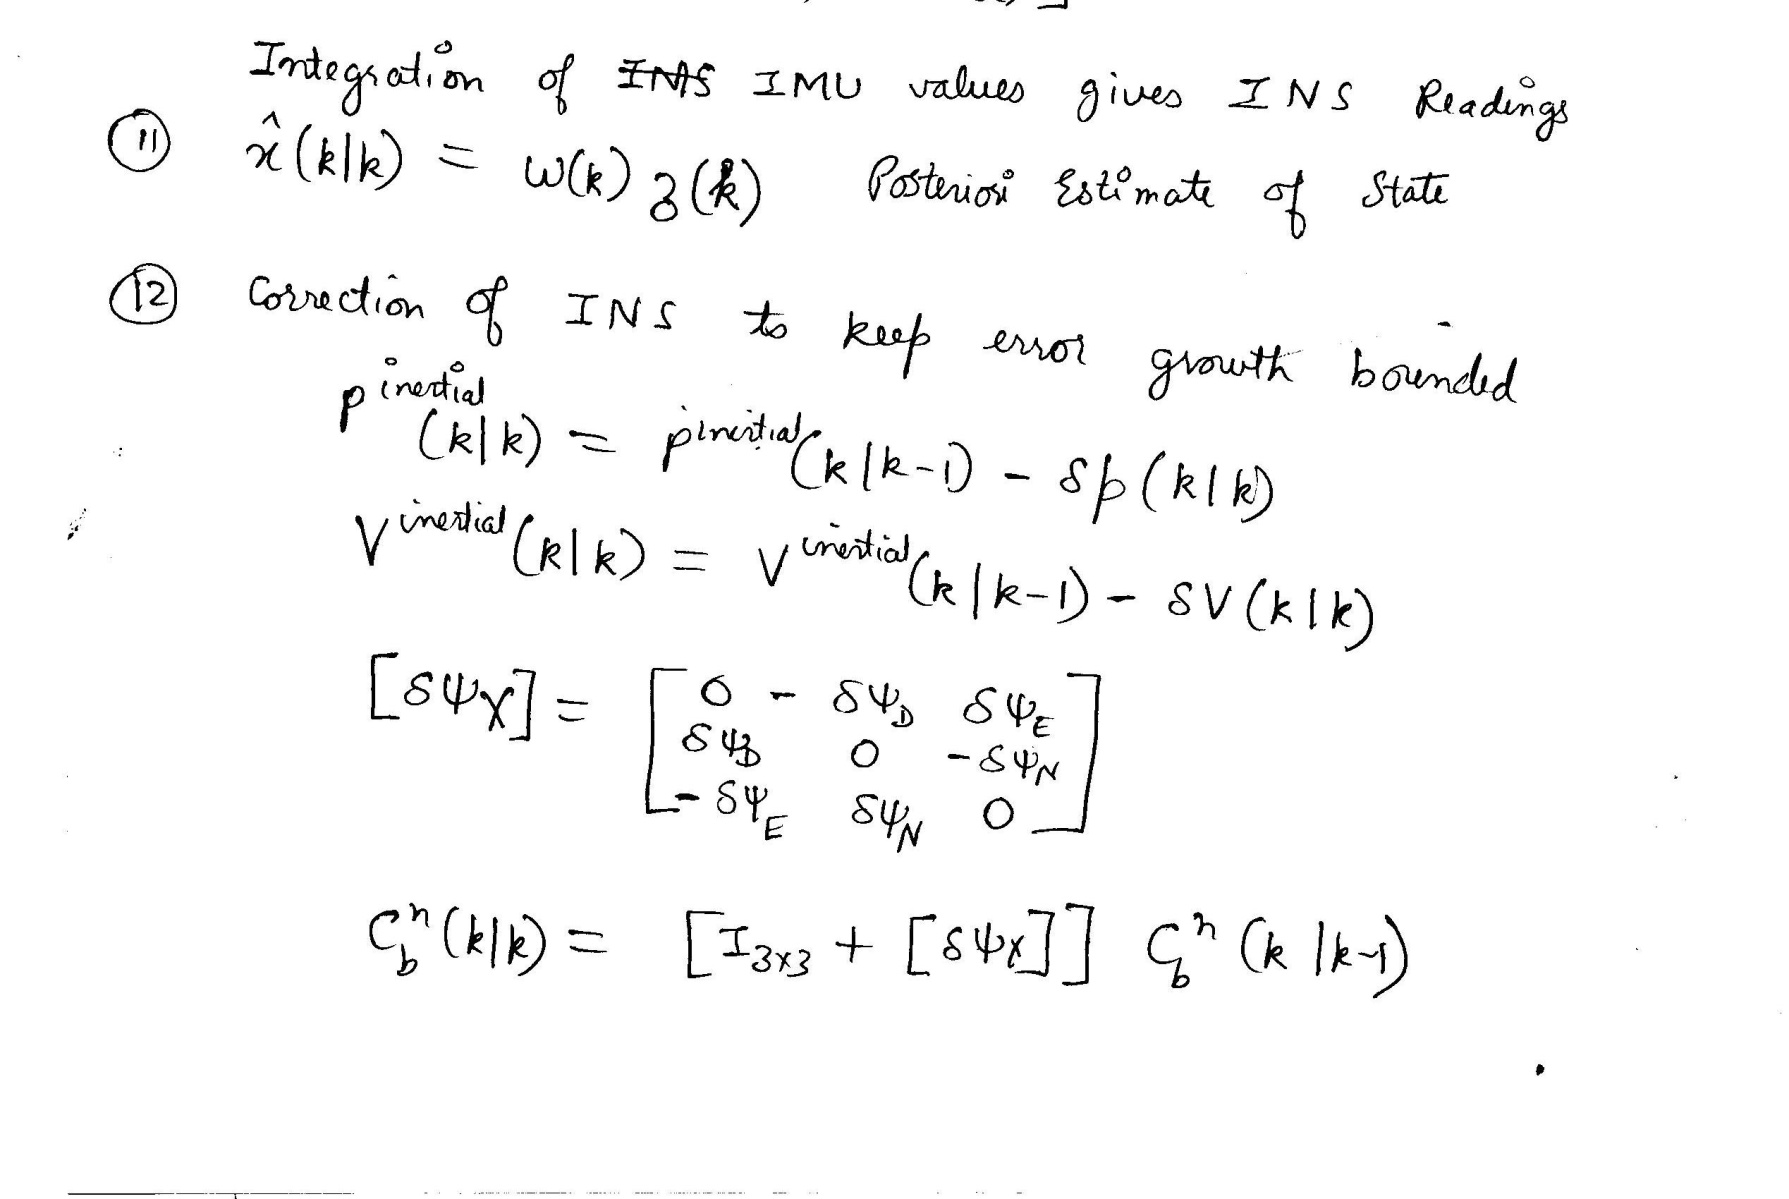 Integration of I̶N̶S̶ IMU values gives INS Readings
(11) x̂(k|k) = W(k) z(k) Posteriori Estimate of State
(12) Correction of INS to keep error growth bounded
p^inertial (k|k) = p^inertial (k|k-1) - δp(k|k)
V^inertial (k|k) = V^inertial (k|k-1) - δV(k|k)
[δψX] = [ 0 -δψ_D δψ_E
δψ_D 0 -δψ_N
-δψ_E δψ_N 0 ]
C_b^n (k|k) = [I_3x3 + [δψx]] C_b^n (k|k-1)